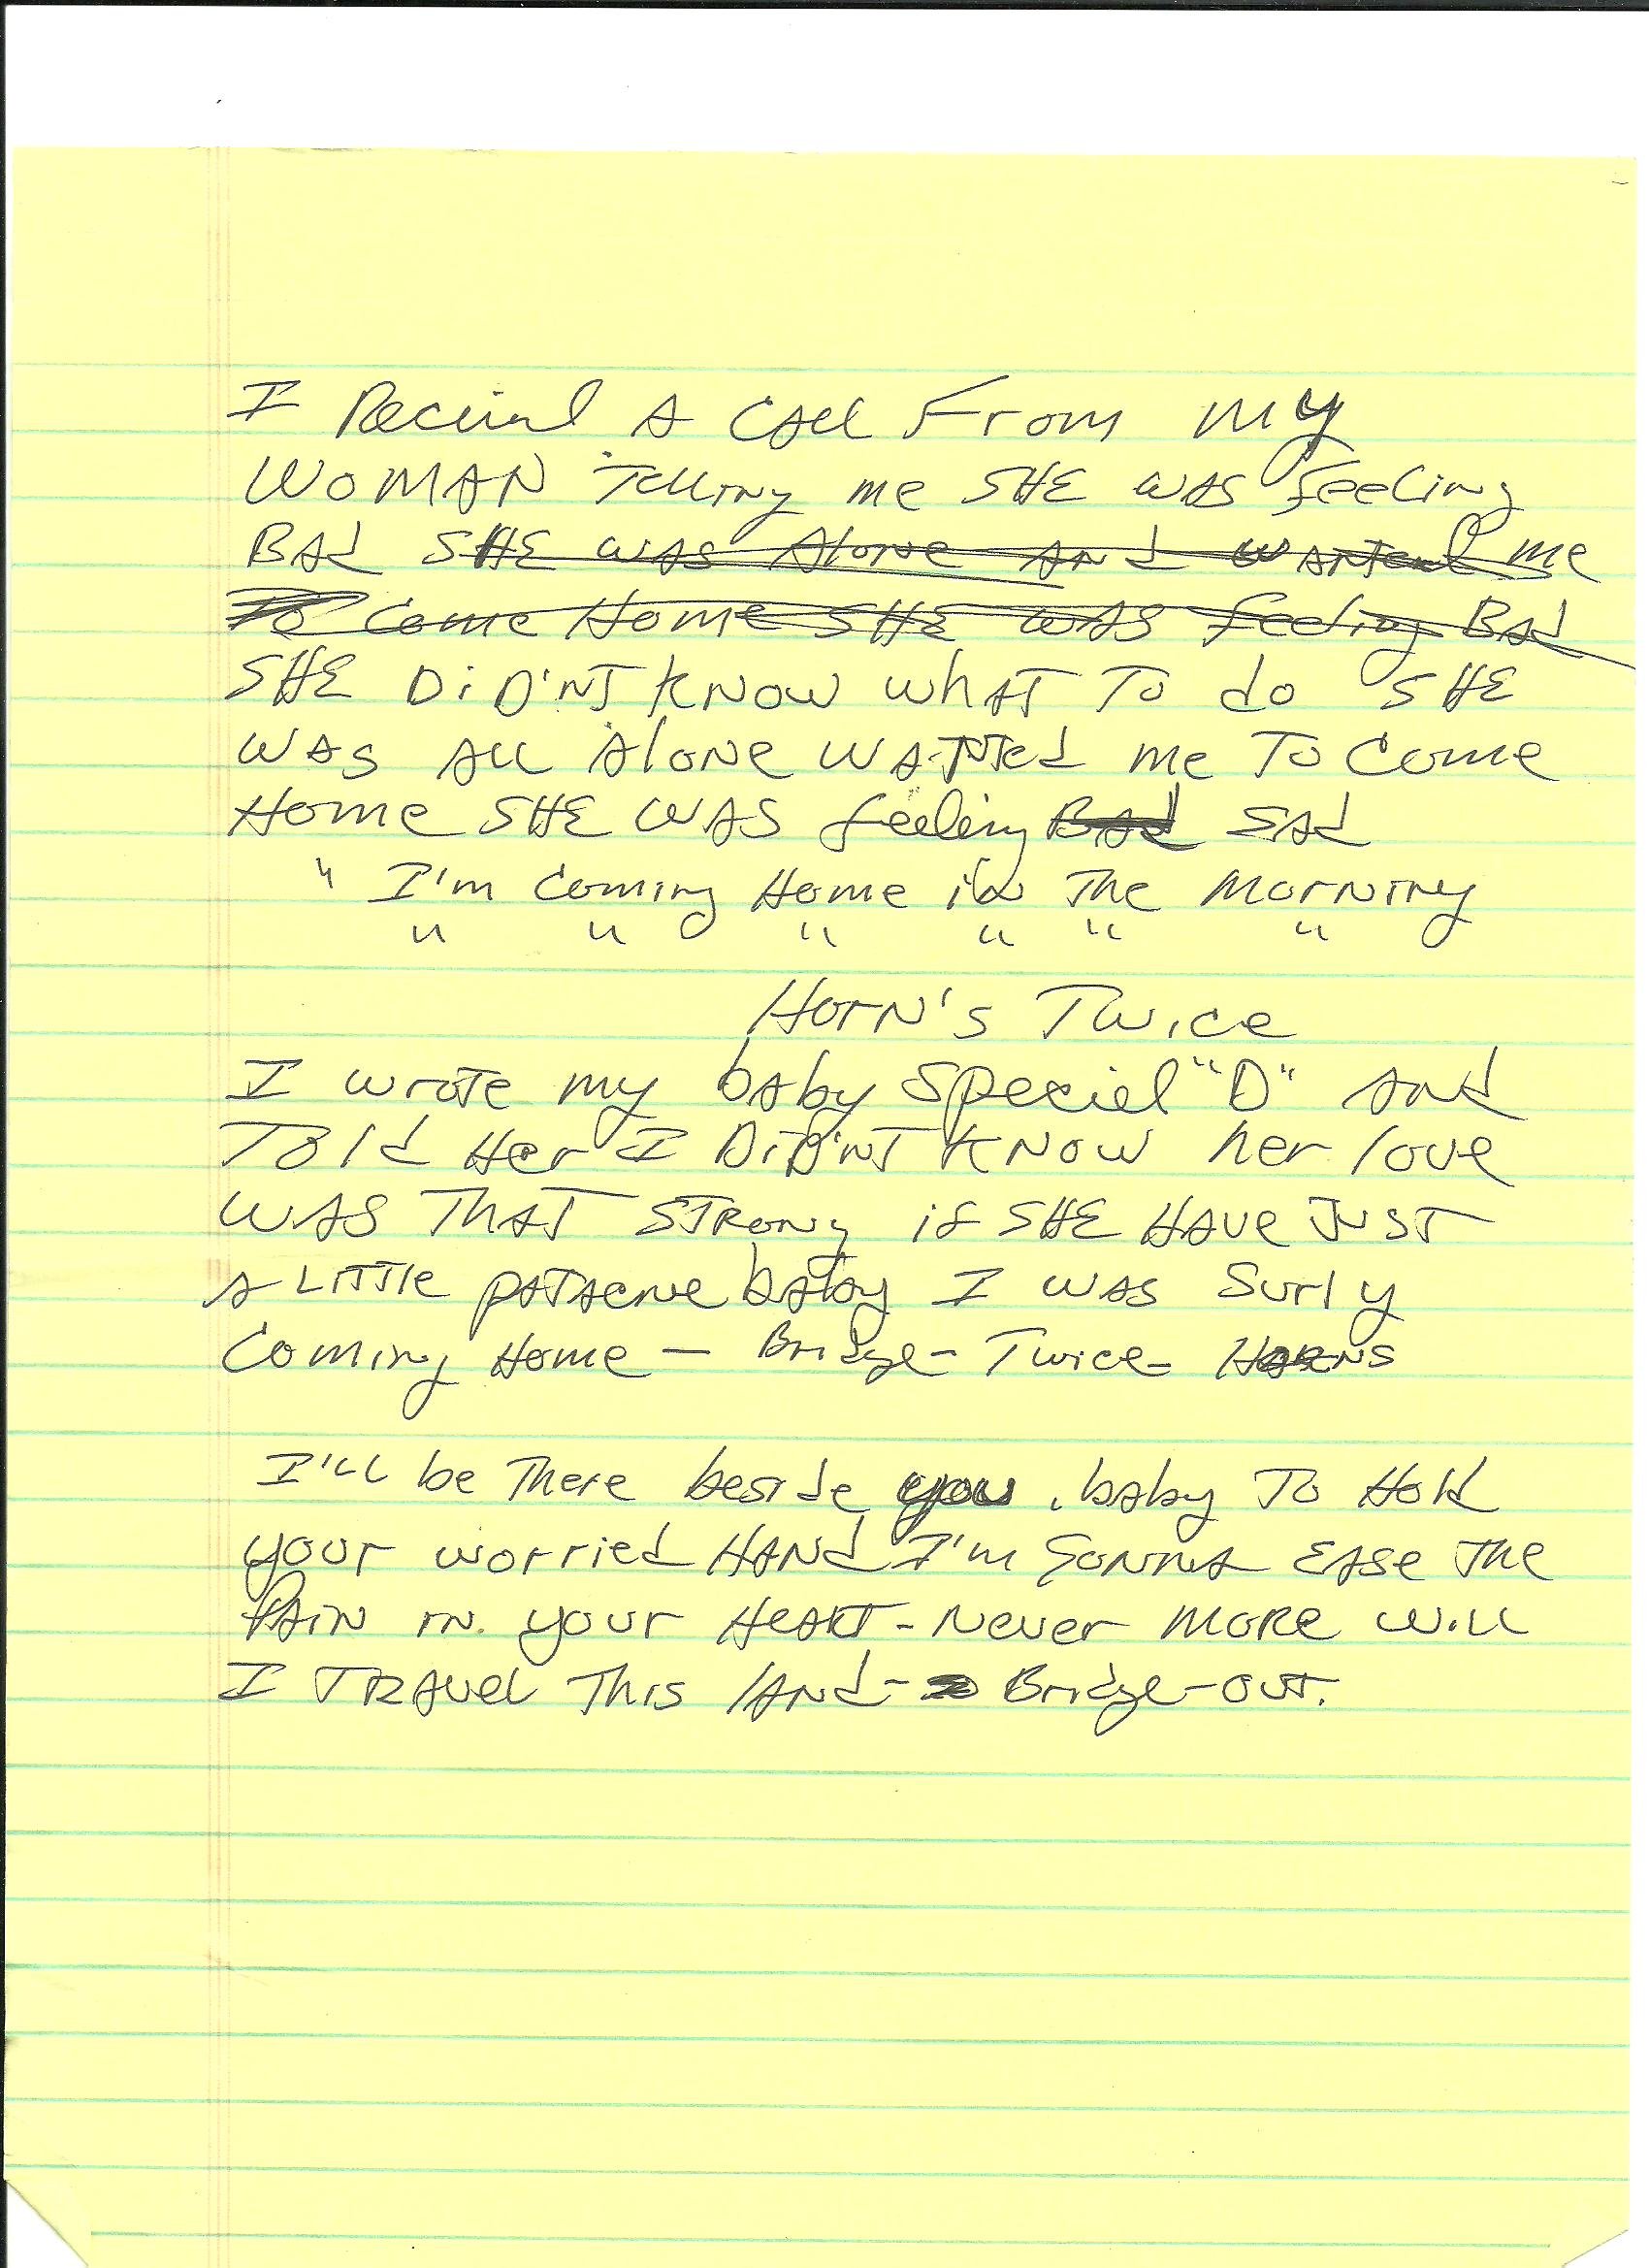 I Recieved A CAll From my
WOMAN Telling me SHE WAS Feeling
BAd SHE WAS Alone ANd WANTed me
To Come Home SHE WAS Feeling BAd
SHE DiD'NT KNOW WhAT To do SHE
WAS All Alone WANTed me To Come
Home SHE WAS feeling BAd SAd
" I'm Coming Home in The MorNiNg
" " " " " "
HorN's Twice
I wroTe my bAby Special "D" And
Told Her I DiD'NT KNOW her love
WAS THAT STRong if SHE HAve JUST
A LITTle paTAence bAby I WAS Surly
Coming Home — Bridge - Twice - HORNS
I'll be There beside you . bAby To Hold
your worried HANd I'm GonnA EAse The
PAiN in your HeART - Never MORe Will
I TRAvel This lANd - Bridge - OuT.